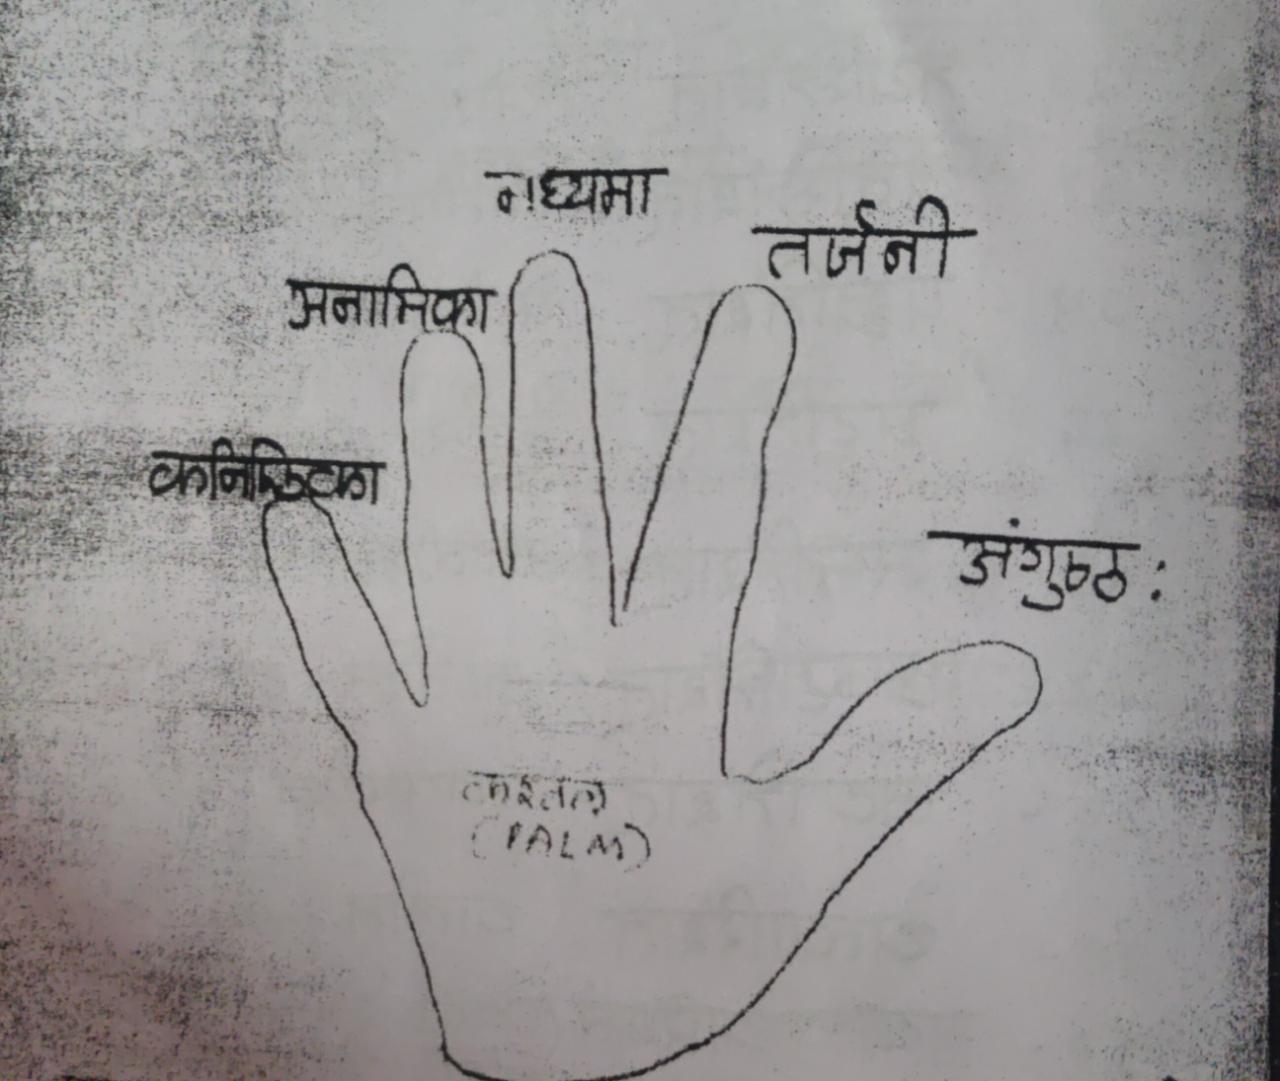 मध्यमा
तर्जनी
अनामिका
कनिष्ठिका
अंगुष्ठ :
करतल
(PALM)